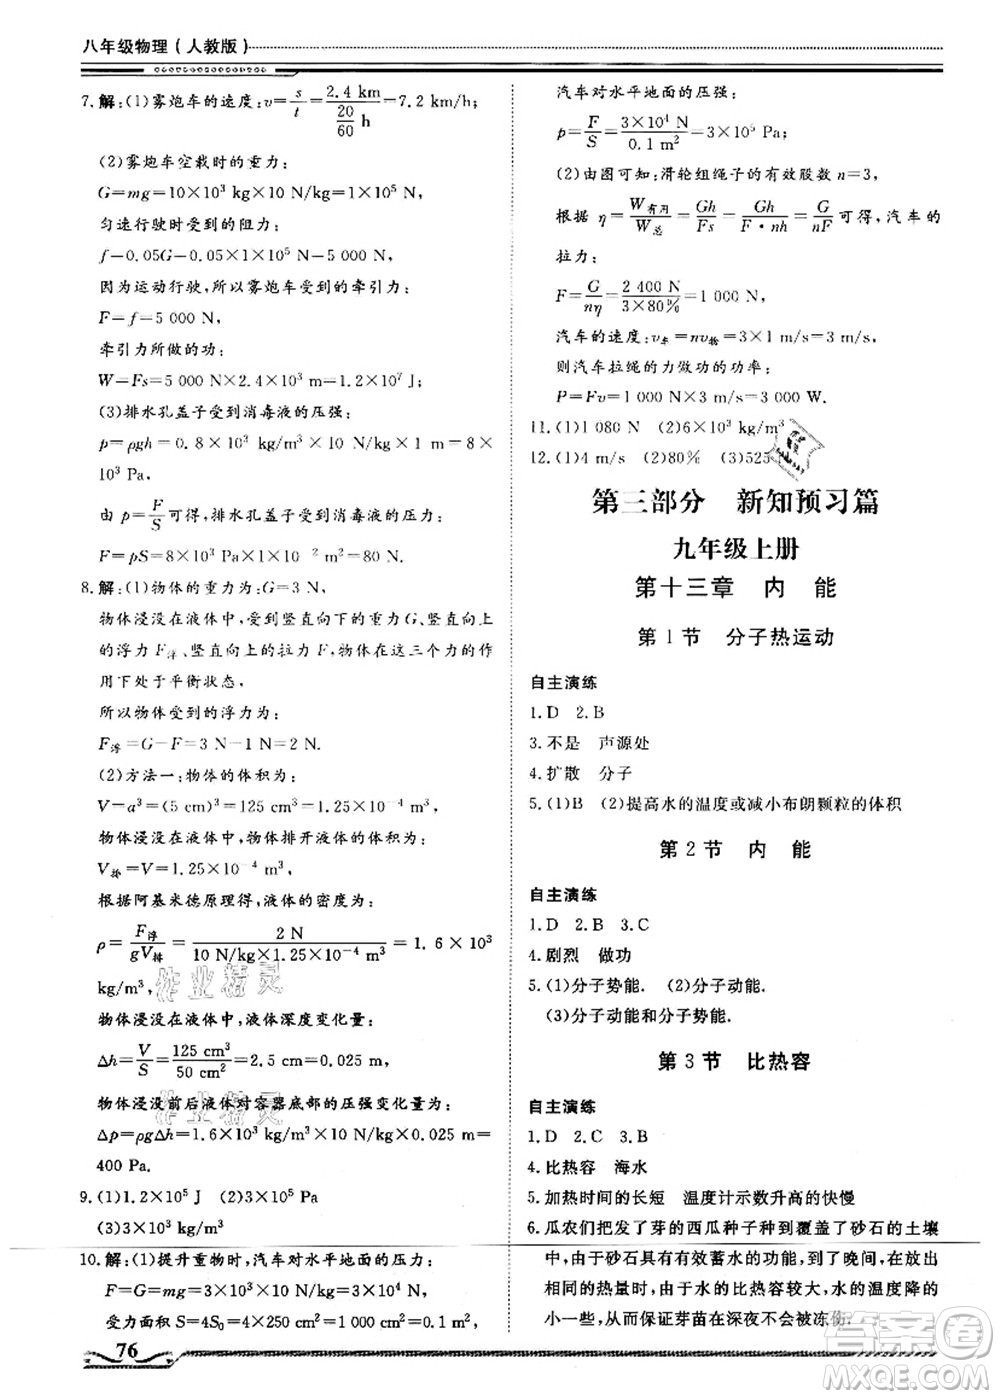 八年级物理（人教版）
7.解:(1)雾炮车的速度:v=s/t=2.4 km/(20/60 h)=7.2 km/h;
(2)雾炮车空载时的重力:
G=mg=10×10³ kg×10 N/kg=1×10⁵ N,
匀速行驶时受到的阻力:
f=0.05G-0.05×1×10⁵ N=5 000 N,
因为运动行驶,所以雾炮车受到的牵引力:
F=f=5 000 N,
牵引力所做的功:
W=Fs=5 000 N×2.4×10³ m=1.2×10⁷ J;
(3)排水孔盖子受到消毒液的压强:
p=ρgh=0.8×10³ kg/m³×10 N/kg×1 m=8×
10³ Pa,
由 p=F/S可得,排水孔盖子受到消毒液的压力:
F=pS=8×10³ Pa×1×10⁻² m²=80 N.
8.解:(1)物体的重力为:G=3 N,
物体浸没在液体中,受到竖直向下的重力G、竖直向上
的浮力F浮、竖直向上的拉力F,物体在这三个力的作
用下处于平衡状态,
所以物体受到的浮力为:
F浮=G-F=3 N-1 N=2 N.
(2)方法一:物体的体积为:
V=a³=(5 cm)³=125 cm³=1.25×10⁻⁴ m³,
物体浸没在液体中,物体排开液体的体积为:
V排=V=1.25×10⁻⁴ m³,
根据阿基米德原理得,液体的密度为:
ρ=F浮/gV排=2 N/(10 N/kg×1.25×10⁻⁴ m³)=1.6×10³
kg/m³,
物体浸没在液体中,液体深度变化量:
Δh=V/S=125 cm³/50 cm²=2.5 cm=0.025 m,
物体浸没前后液体对容器底部的压强变化量:
Δp=ρgΔh=1.6×10³ kg/m³×10 N/kg×0.025 m=
400 Pa.
9.(1)1.2×10⁵ J (2)3×10⁵ Pa
(3)3×10⁴ W
10.解:(1)提升重物时,汽车对水平地面的压力:
F=G=mg=3×10³ kg×10 N/kg=3×10⁴ N,
受力面积 S=4S₀=4×250 cm²=0.1 m²,
76
汽车对水平地面的压强:
p=F/S=3×10⁴ N/0.1 m²=3×10⁵ Pa;
(2)由图可知:滑轮组绳子的有效股数 n=3,
根据 η=W有用/W总=Gh/Fs=Gh/F·nh=G/nF可得,汽车的
拉力:
F=G/nη=2 400 N/3×80%=1 000 N,
汽车的速度:v车=nv物=3×1 m/s=3 m/s,
则汽车拉绳的力做功的功率:
P=Fv=1 000 N×3 m/s=3 000 W.
11.(1)1 080 N (2)6×10³ kg/m³
12.(1)4 m/s (2)80% (3)525 N
第三部分 新知预习篇
九年级上册
第十三章 内 能
第1节 分子热运动
自主演练
1.D 2.B
3.不是 声源处
4.扩散 分子
5.(1)B (2)提高水的温度或减小布朗颗粒的体积
第2节 内 能
自主演练
1.D 2.B 3.C
4.剧烈 做功
5.(1)分子势能. (2)分子动能.
(3)分子动能和分子势能.
第3节 比热容
自主演练
1.D 2.C 3.B
4.比热容 海水
5.加热时间的长短 温度计示数升高的快慢
6.瓜农们把发了芽的西瓜种子种到覆盖了砂石的土壤
中,由于砂石具有有效蓄水的功能,到了晚间,在放出
相同的热量时,由于水的比热容较大,水的温度降低
小一些,从而保证芽苗在深夜不会被冻伤.
作业精灵
作业精灵
答案卷
MXQE.COM